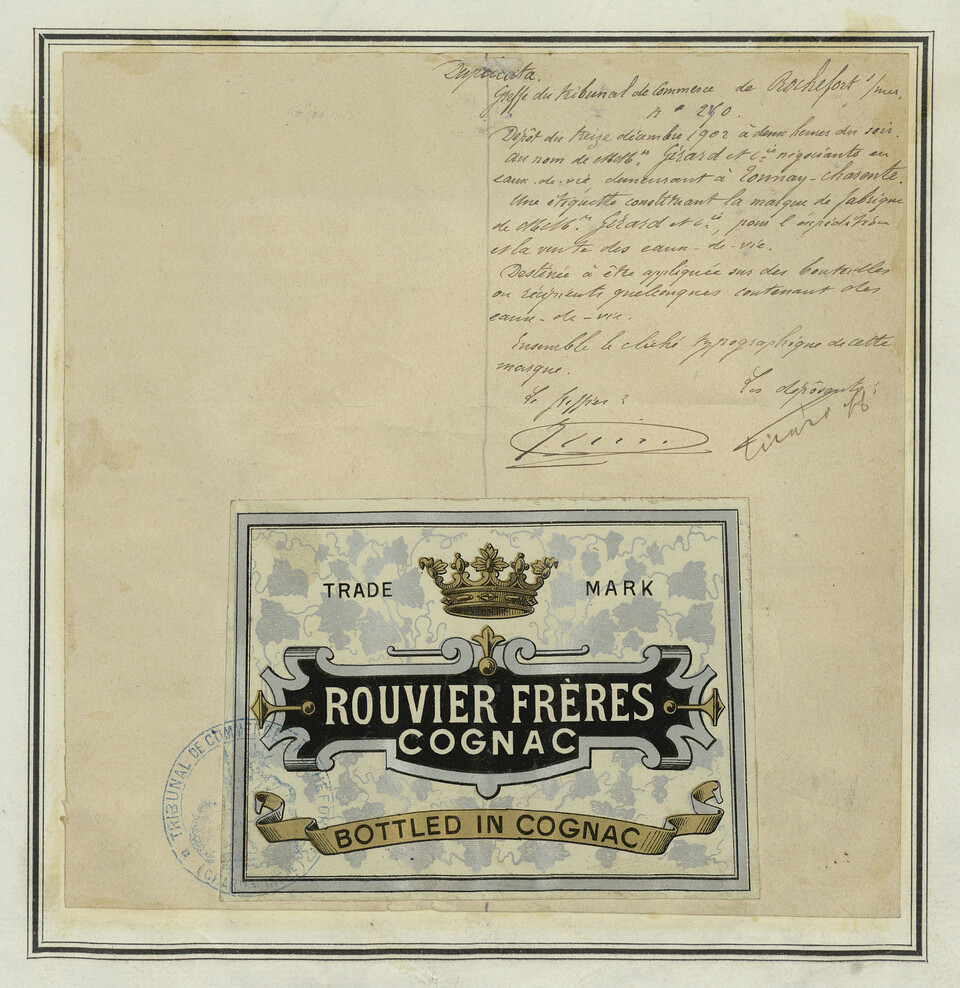 Duplicata.
Greffe du tribunal de Commerce de Rochefort s/mer.
N° 240.
Dépôt du treize décembre 1902 à deux heures du soir.
au nom de MM.rs Gérard et Cie négociants en
eaux-de-vie demeurant à Tonnay-charente.
Une étiquette constituant la marque de fabrique
de MM.rs Gérard et Cie, pour l'expédition
et la vente des eaux-de-vie.
Destinée à être appliquée sur des bouteilles
ou récipients quelconques contenant des
eaux-de-vie.
Ensemble le cliché typographique de cette
marque.
Le greffier : Les déposants :
TRADE MARK
ROUVIER FRÈRES
COGNAC
BOTTLED IN COGNAC
TRIBUNAL DE COMMERCE